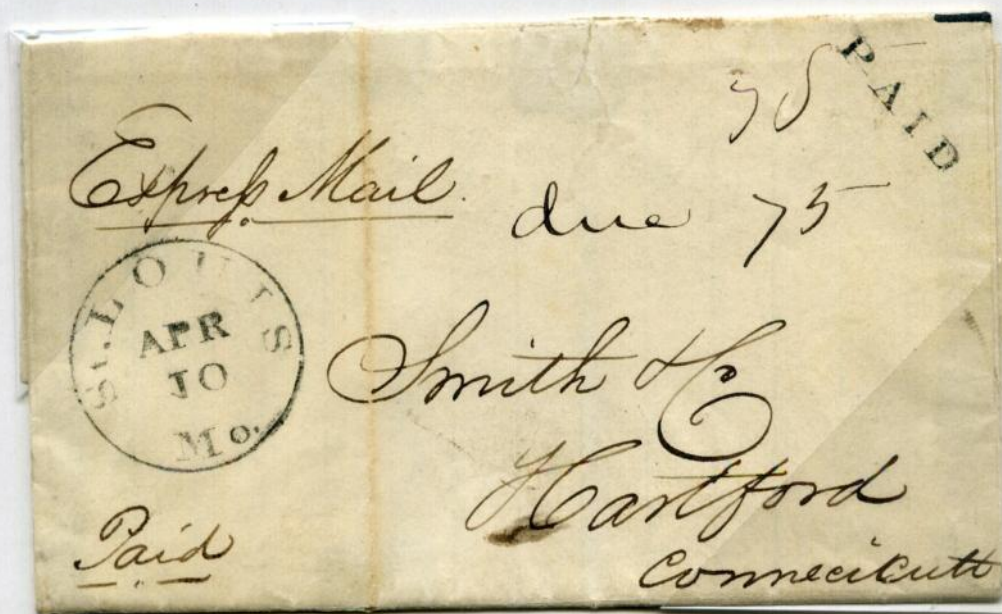 PAID
Express Mail.
due 75
St. LOUIS
APR
10
Mo.
Smith & Co
Hartford
Connecticutt
Paid